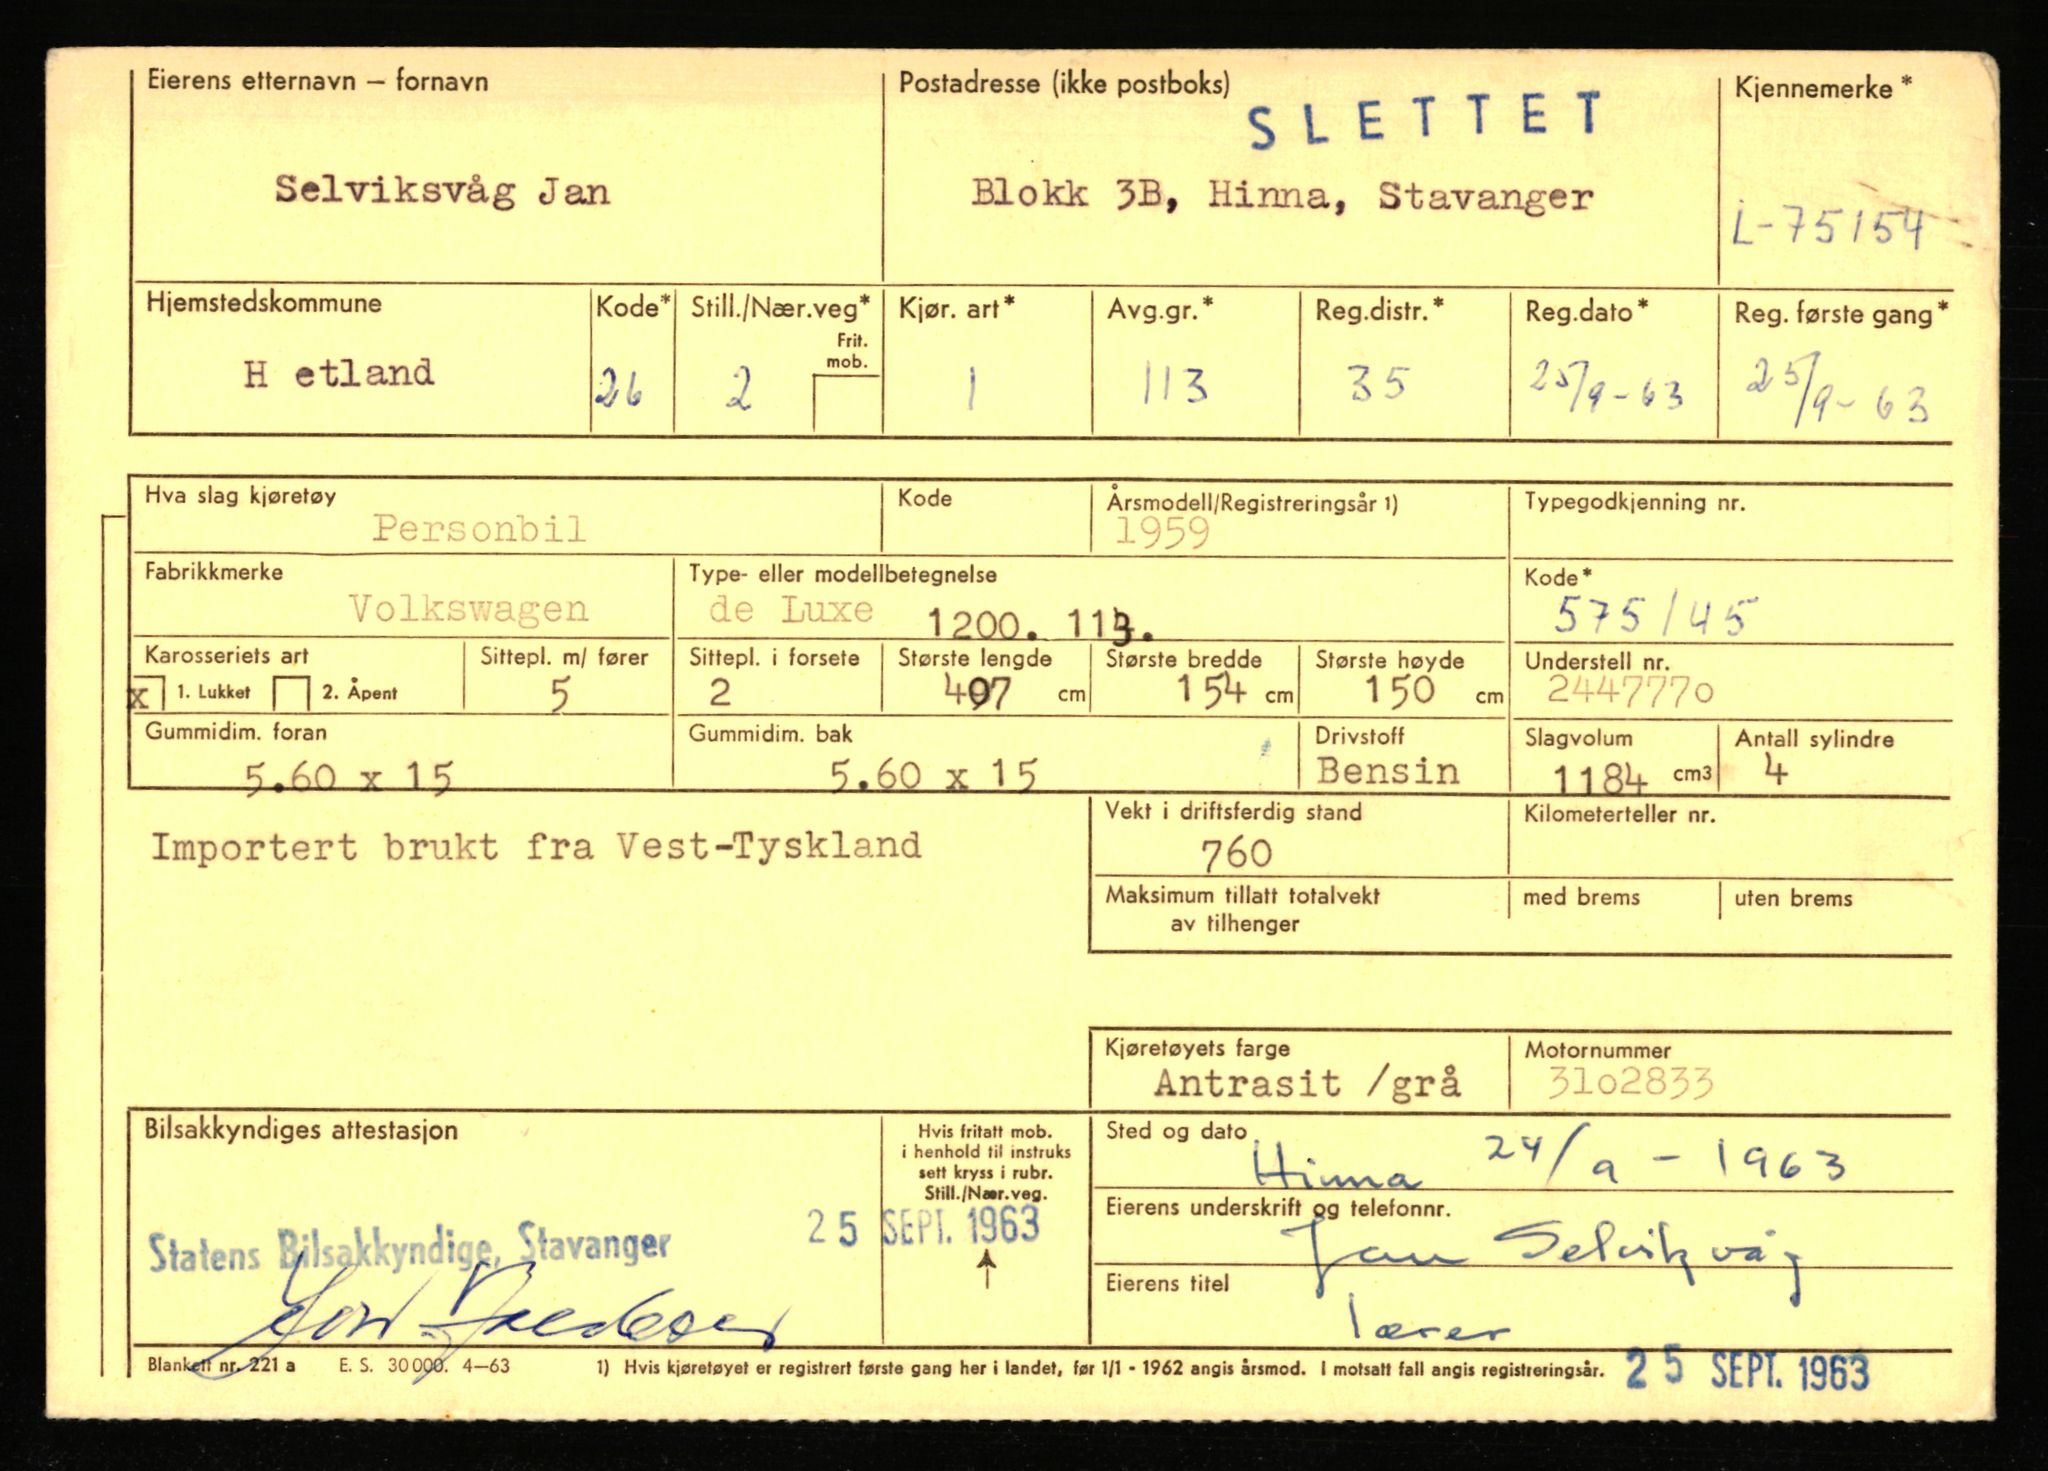 Eierens etternavn – fornavn
Postadresse (ikke postboks)
Kjennemerke*
SLETTET
Selviksvåg Jan
Blokk 3B, Hinna, Stavanger
L-75154
Hjemstedskommune
Kode*
Still./Nær.veg*
Frit. mob.
Kjør. art*
Avg.gr.*
Reg.distr.*
Reg.dato*
Reg. første gang*
H etland
26
2
1
113
35
25/9-63
25/9-63
Hva slag kjøretøy
Kode
Årsmodell/Registreringsår 1)
Typegodkjenning nr.
Personbil
1959
Fabrikkmerke
Type- eller modellbetegnelse
Kode*
Volkswagen
de Luxe 1200. 113.
575/45
Karosseriets art
Sittepl. m/ fører
Sittepl. i forsete
Største lengde
Største bredde
Største høyde
Understell nr.
x 1. Lukket 2. Åpent
5
2
407 cm
154 cm
150 cm
2447770
Gummidim. foran
Gummidim. bak
Drivstoff
Slagvolum
Antall sylindre
5.60 x 15
5.60 x 15
Bensin
1184 cm3
4
Importert brukt fra Vest-Tyskland
Vekt i driftsferdig stand
Kilometerteller nr.
760
Maksimum tillatt totalvekt
av tilhenger
med brems
uten brems
Kjøretøyets farge
Motornummer
Antrasit /grå
31o2833
Bilsakkyndiges attestasjon
Hvis fritatt mob.
i henhold til instruks
sett kryss i rubr.
Still./Nær.veg.
Sted og dato
Hinna 24/9 - 1963
Eierens underskrift og telefonnr.
Jan Selviksvåg
Statens Bilsakkyndige, Stavanger
25 SEPT. 1963
Eierens titel
lærer
Blankett nr. 221 a E. S. 30 000. 4–63
1) Hvis kjøretøyet er registrert første gang her i landet, før 1/1 - 1962 angis årsmod. I motsatt fall angis registreringsår.
25 SEPT. 1963